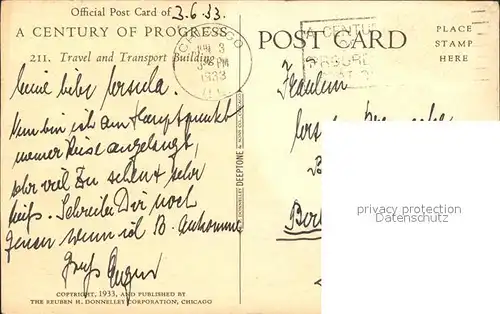 Official Post Card of 3.6.33.
A CENTURY OF PROGRESS
211. Travel and Transport Building
CHICAGO
JUN 3
PM
1933
ILL.
A CENTU
POST CARD
PLACE
STAMP
HERE
Meine liebe Ursula.
Nun bin ich am Hauptpunkt
meiner Reise angelangt,
sehr viel zu sehen & sehr
heiß. Schreibe Dir noch
genau wenn ich B. ankomme
Gruß
Fräulein
DONNELLEY DEEPTONE
privacy protection
www.oldthing.com
COPYRIGHT, 1933, AND PUBLISHED BY
THE REUBEN H. DONNELLEY CORPORATION, CHICAGO